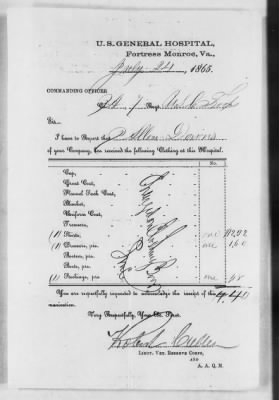 U. S. GENERAL HOSPITAL,
Fortress Monroe, Va.,
July 24, 1865.
COMMANDING OFFICER
Co. 7 Regt.
SIR—
I have to Report that Allen
of your Company, has received the following Clothing at this Hospital.
No.
Cap, -
Great Coat, -
Flannel Sack Coat, -
Blanket, -
Uniform Coat, -
Trowsers, -
(1) Shirts, - one
(1) Drawers, prs. - one 1,60
Bootees, prs. -
Boots, prs. -
(1) Stockings, prs. - one 48
You are respectfully requested to acknowledge the receipt of this
communication.
Very Respectfully, Your Ob. Servt.
Robert
LIEUT. VET. RESERVE CORPS,
AND
A. A. Q. M.